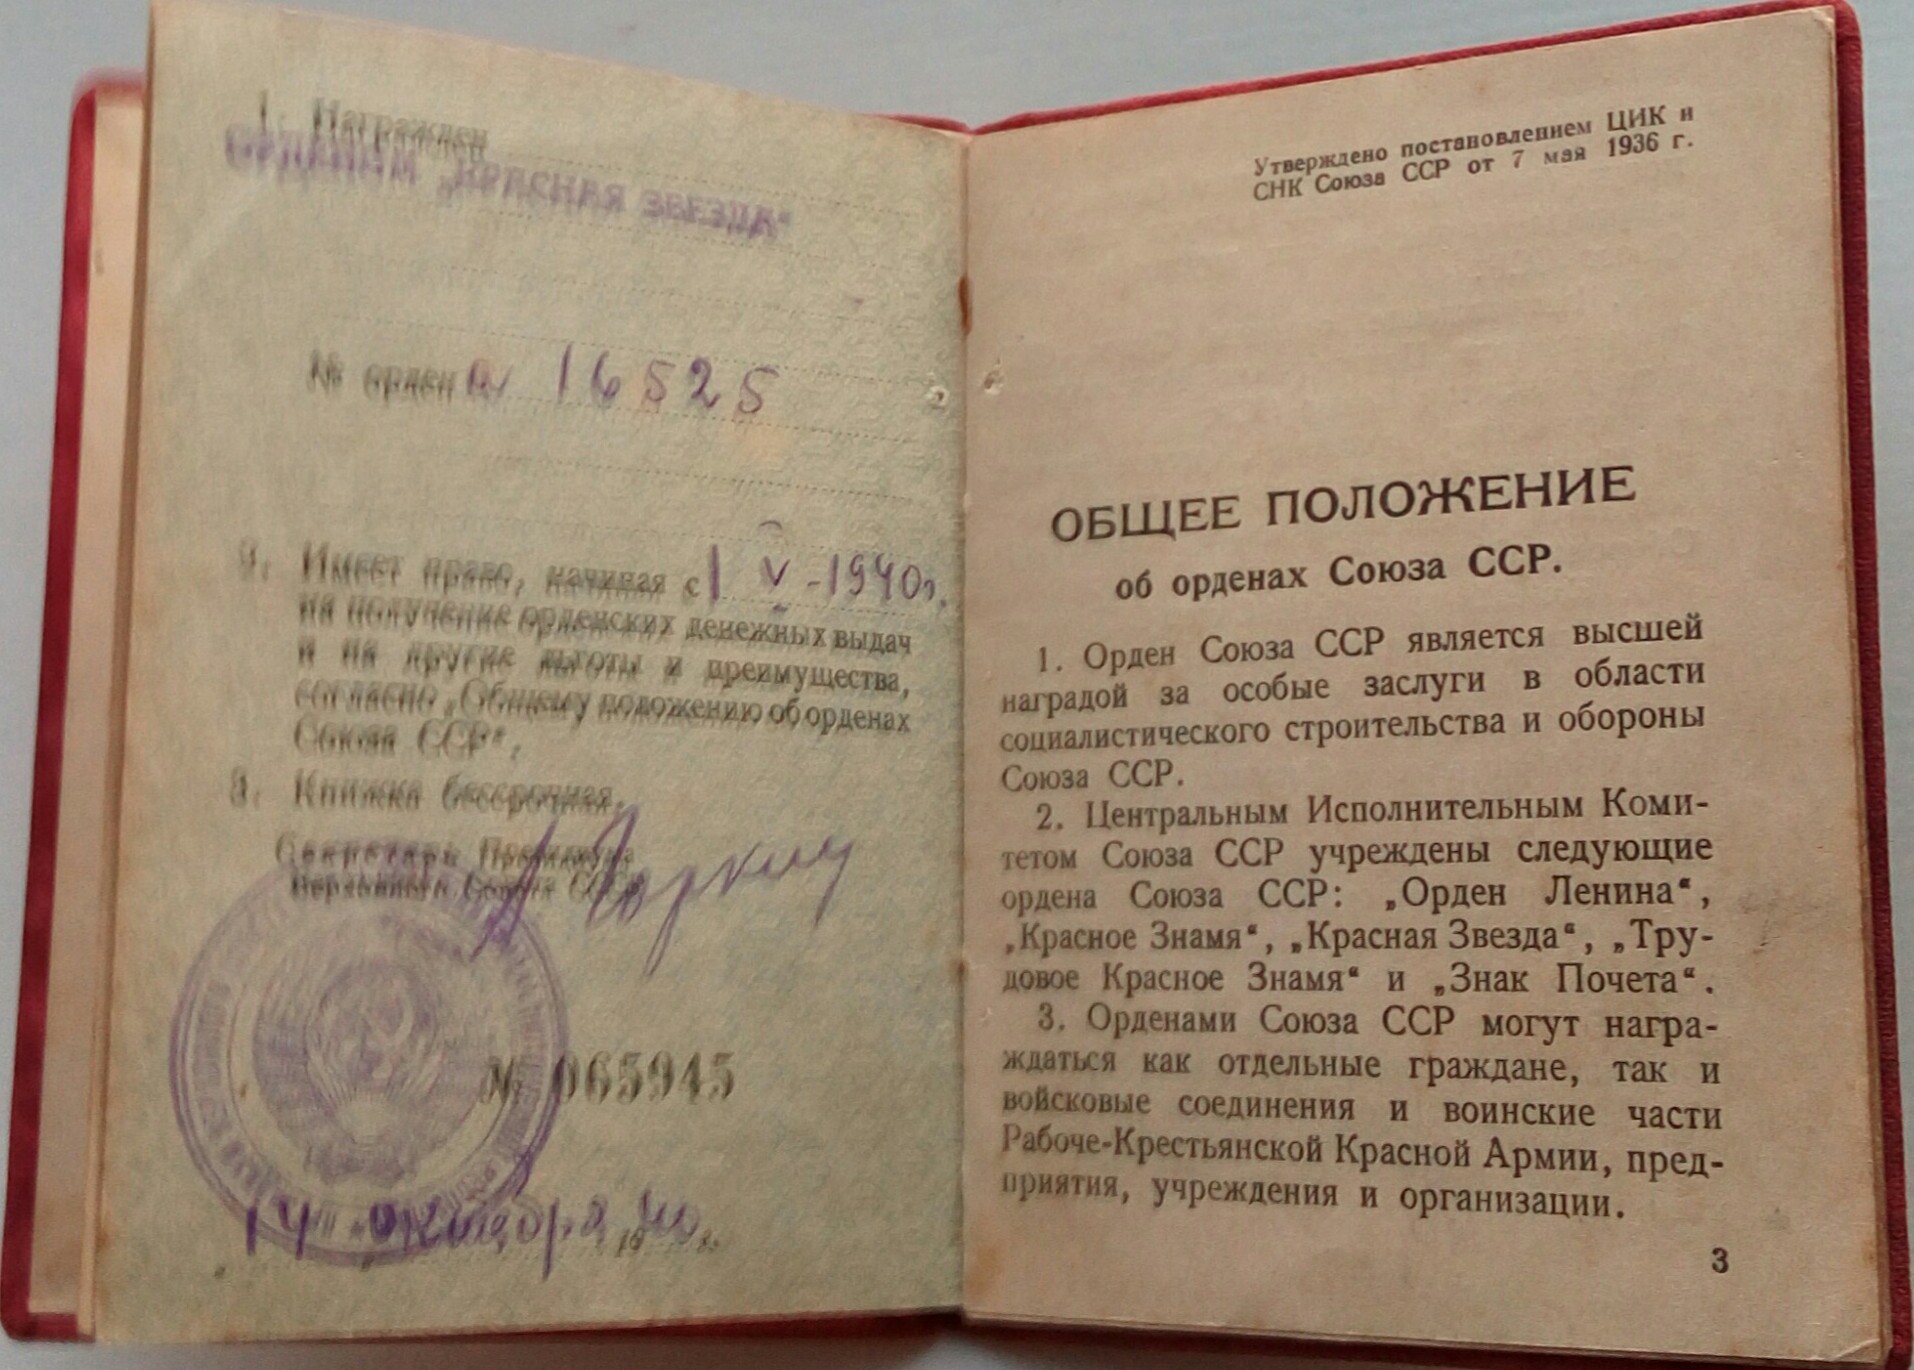 Награжден
Орденом „КРАСНАЯ ЗВЕЗДА“
№ ордена 16525
Имеет право, начиная с 1 V - 1940 г.
на получение орденских денежных выдач
и на другие льготы и преимущества,
согласно „Общему положению об орденах
Союза ССР“.
8. Книжка бессрочная.
Секретарь Президиума
Верховного Совета СССР
А Горкин
№ 065945
14 октября 1940 г.
Утверждено постановлением ЦИК и
СНК Союза ССР от 7 мая 1936 г.
ОБЩЕЕ ПОЛОЖЕНИЕ
об орденах Союза ССР.
1. Орден Союза ССР является высшей
наградой за особые заслуги в области
социалистического строительства и обороны
Союза ССР.
2. Центральным Исполнительным Коми-
тетом Союза ССР учреждены следующие
ордена Союза ССР: „Орден Ленина“,
„Красное Знамя“, „Красная Звезда“, „Тру-
довое Красное Знамя“ и „Знак Почета“.
3. Орденами Союза ССР могут награ-
ждаться как отдельные граждане, так и
войсковые соединения и воинские части
Рабоче-Крестьянской Красной Армии, пред-
приятия, учреждения и организации.
3